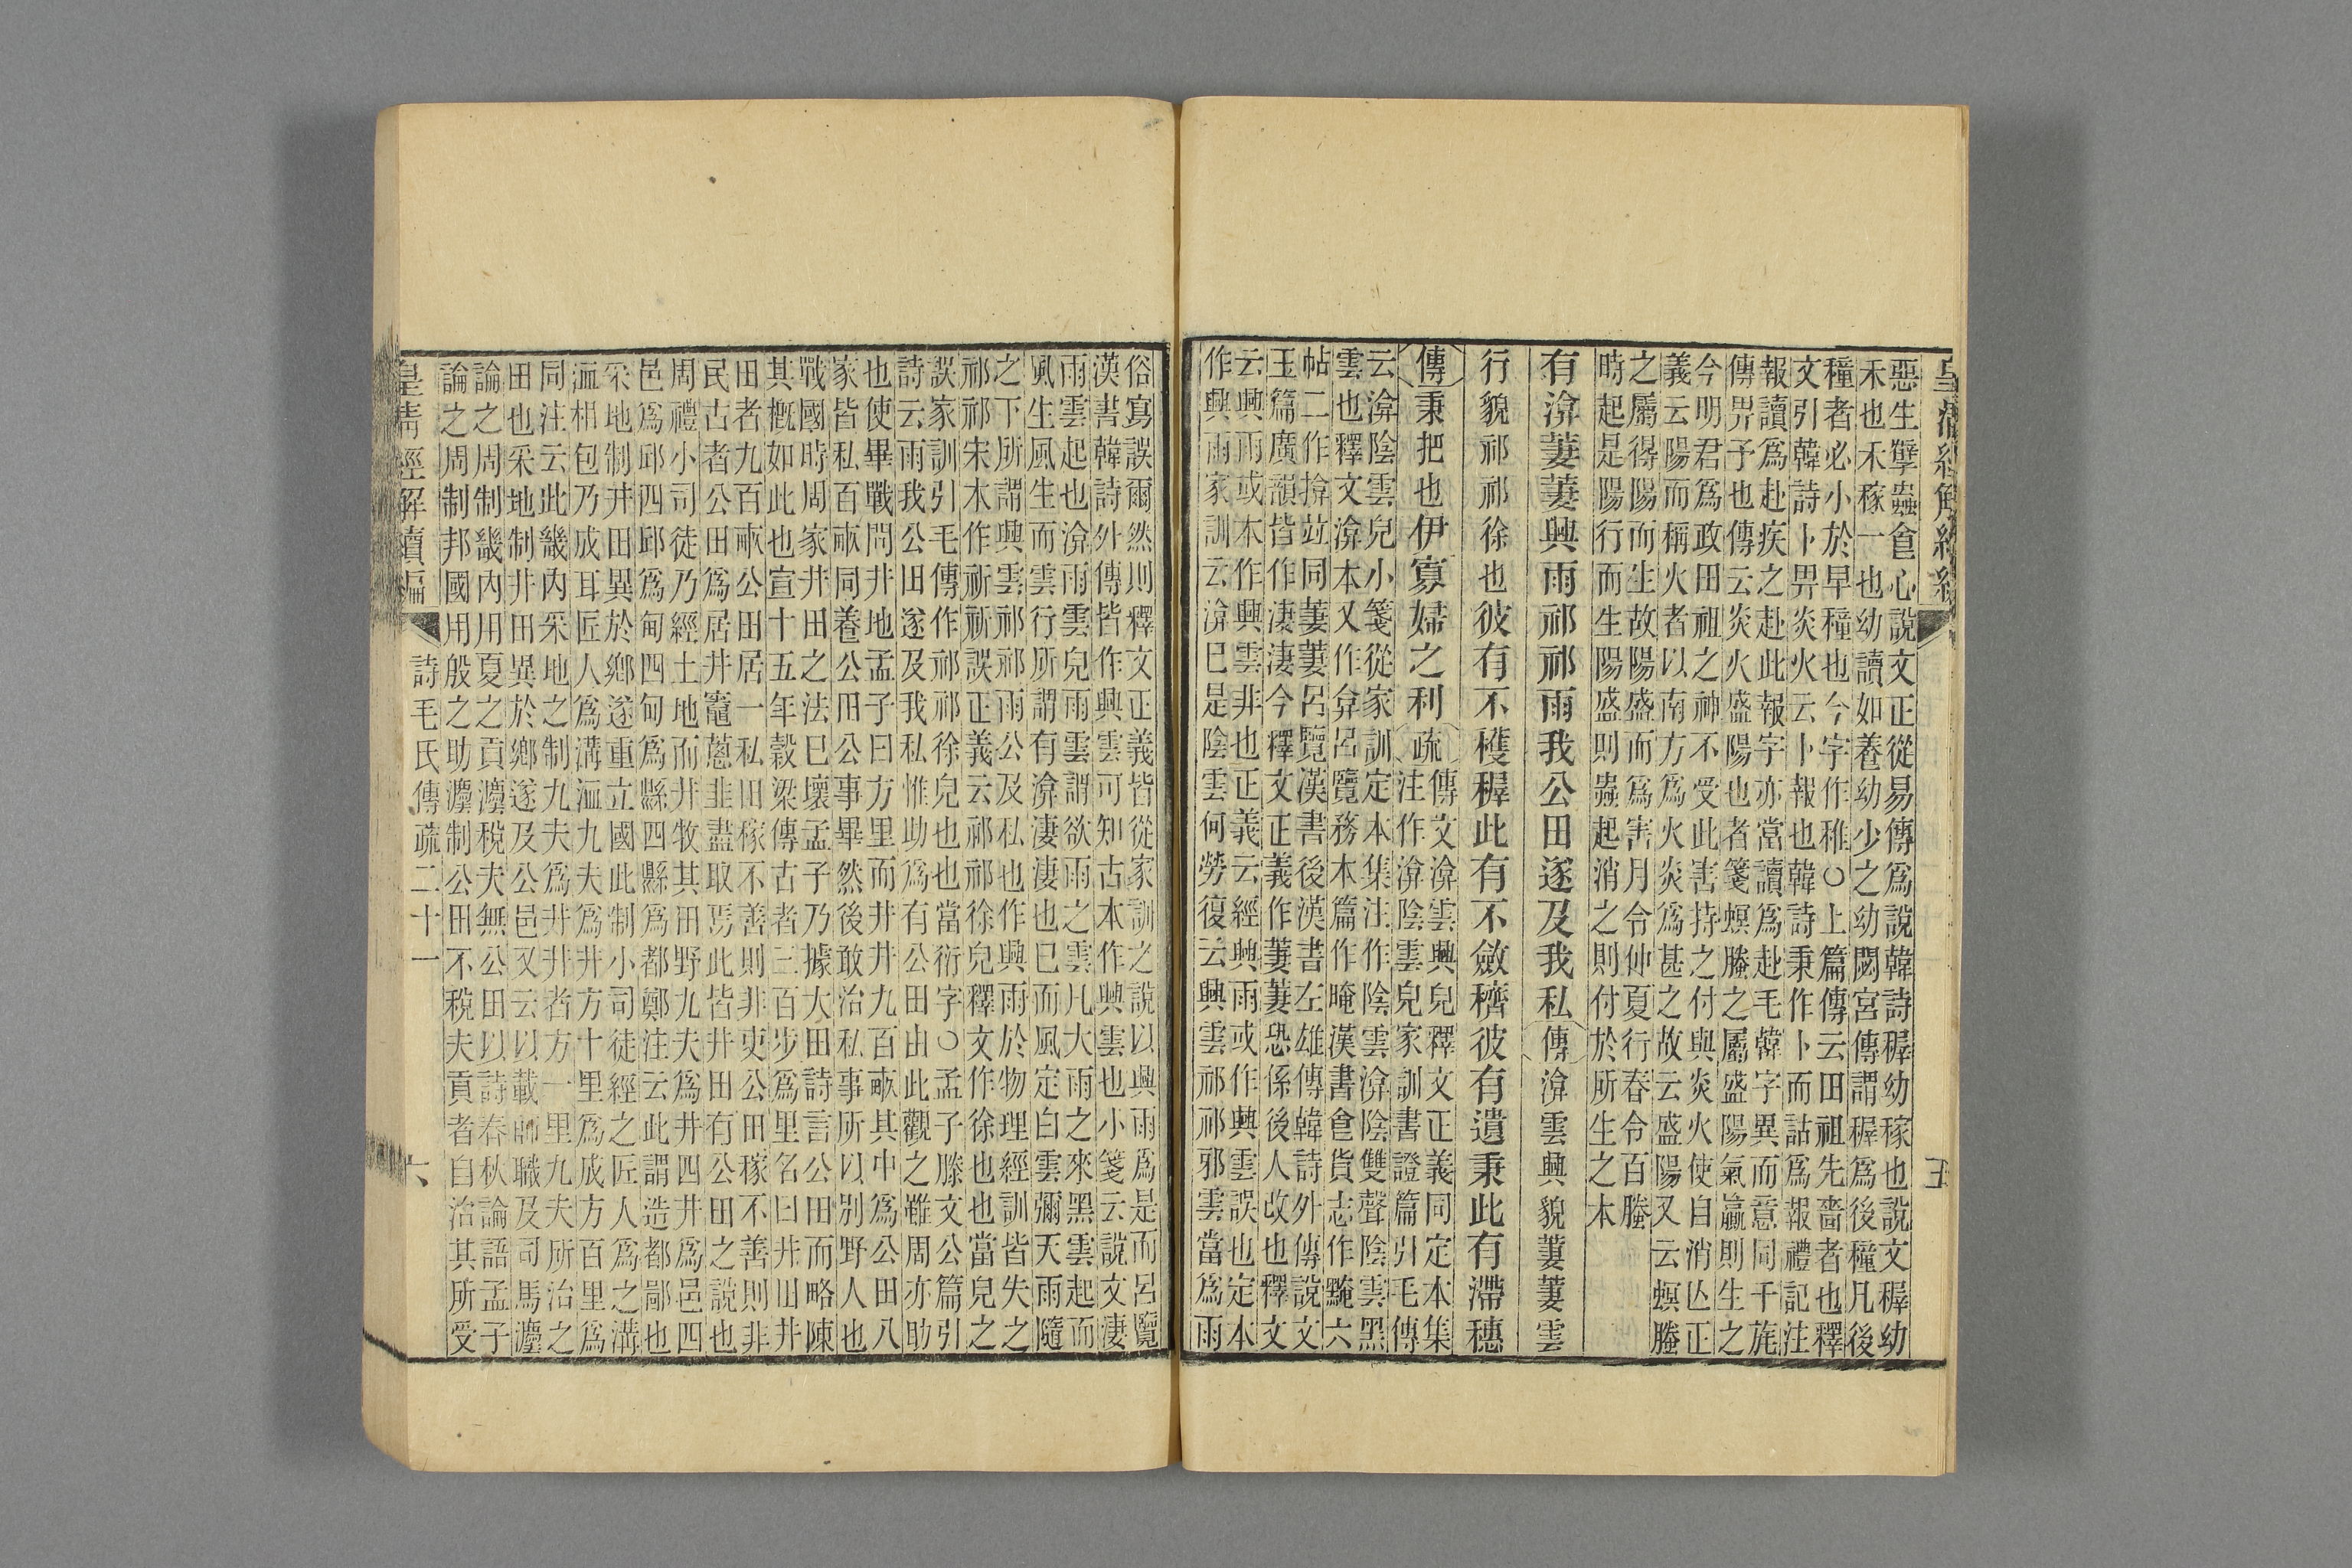 皇清經解續編
五
惡生孽蟲食心說文正從易傳爲說韓詩穉幼稼也說文穉幼
禾也禾稼一也幼讀如養幼少之幼閟宮傳謂穉爲後種凡後
種者必小於早種也今字作稚○上篇傳云田祖先嗇者也釋
文引韓詩卜畀炎火云卜報也韓詩秉作卜而詁爲報禮記注
報讀爲赴疾之赴此報字亦當讀爲赴毛韓字異而意同干旄
傳畀予也傳云炎火盛陽也者箋螟螣之屬盛陽氣贏則生之
今明君爲政田祖之神不受此害持之付與炎火使自消亾正
義云陽而稱火者以南方爲火炎爲甚之故云盛陽又云螟螣
之屬得陽而生故陽盛而爲害月令仲夏行春令百螣
時起是陽行而生陽盛則蟲起消之則付於所生之本
有渰萋萋興雨祁祁雨我公田遂及我私傳渰雲興貌萋萋雲
行貌祁祁徐也彼有不穫穉此有不斂穧彼有遺秉此有滯穗
傳秉把也伊寡婦之利疏傳文渰雲興皃釋文正義同定本集
注作渰陰雲皃家訓書證篇引毛傳
云渰陰雲皃小箋從家訓定本集注作陰雲渰陰雙聲陰雲黑
雲也釋文渰本又作弇呂覽務本篇作晻漢書食貨志作黤六
帖二作揜竝同萋萋呂覽漢書後漢書左雄傳韓詩外傳說文
玉篇廣韻皆作淒淒今釋文正義作萋萋恐係後人改也釋文
云興雨或本作興雲非也正義云經興雨或作興雲誤也定本
作興雨家訓云渰已是陰雲何勞復云興雲祁祁邪雲當爲雨
俗寫誤爾然則釋文正義皆從家訓之說以興雨爲是而呂覽
漢書韓詩外傳皆作興雲可知古本作興雲也小箋云說文淒
雨雲起也渰雨雲皃雨雲謂欲雨之雲凡大雨之來黑雲起而
風生風生而雲行所謂有渰淒淒也巳而風定白雲彌天雨隨
之下所謂興雲祁祁雨公及私也作興雨於物理經訓皆失之
祁祁宋本作祈祈誤正義云祁祁徐皃釋文作徐也也當皃之
誤家訓引毛傳作祁祁徐皃也也當衍字○孟子滕文公篇引
詩云雨我公田遂及我私惟助爲有公田由此觀之雖周亦助
也使畢戰問井地孟子曰方里而井井九百畝其中爲公田八
家皆私百畝同養公田公事畢然後敢治私事所以別野人也
戰國時周家井田之法巳壞孟子乃據大田詩言公田而略陳
其槪如此也宣十五年穀梁傳古者三百步爲里名曰井田井
田者九百畝公田居一私田稼不善則非吏公田稼不善則非
民古者公田爲居井竈蔥韭盡取焉此皆井田有公田之說也
周禮小司徒乃經土地而井牧其田野九夫爲井四井爲邑四
邑爲邱四邱爲甸四甸爲縣四縣爲都鄭注云此謂造都鄙也
采地制井田異於鄉遂重立國此制小司徒經之匠人爲之溝
洫相包乃成耳匠人爲溝洫九夫爲井井方十里爲成方百里爲
同注云此畿內采地之制九夫爲井井者方一里九夫所治之
田也采地制井田異於鄉遂及公邑又云以載師職及司馬灋
論之周制畿內用夏之貢灋稅夫無公田以詩春秋論語孟子
論之周制邦國用殷之助灋制公田不稅夫貢者自治其所受
皇清經解續編
詩毛氏傳疏二十一
六